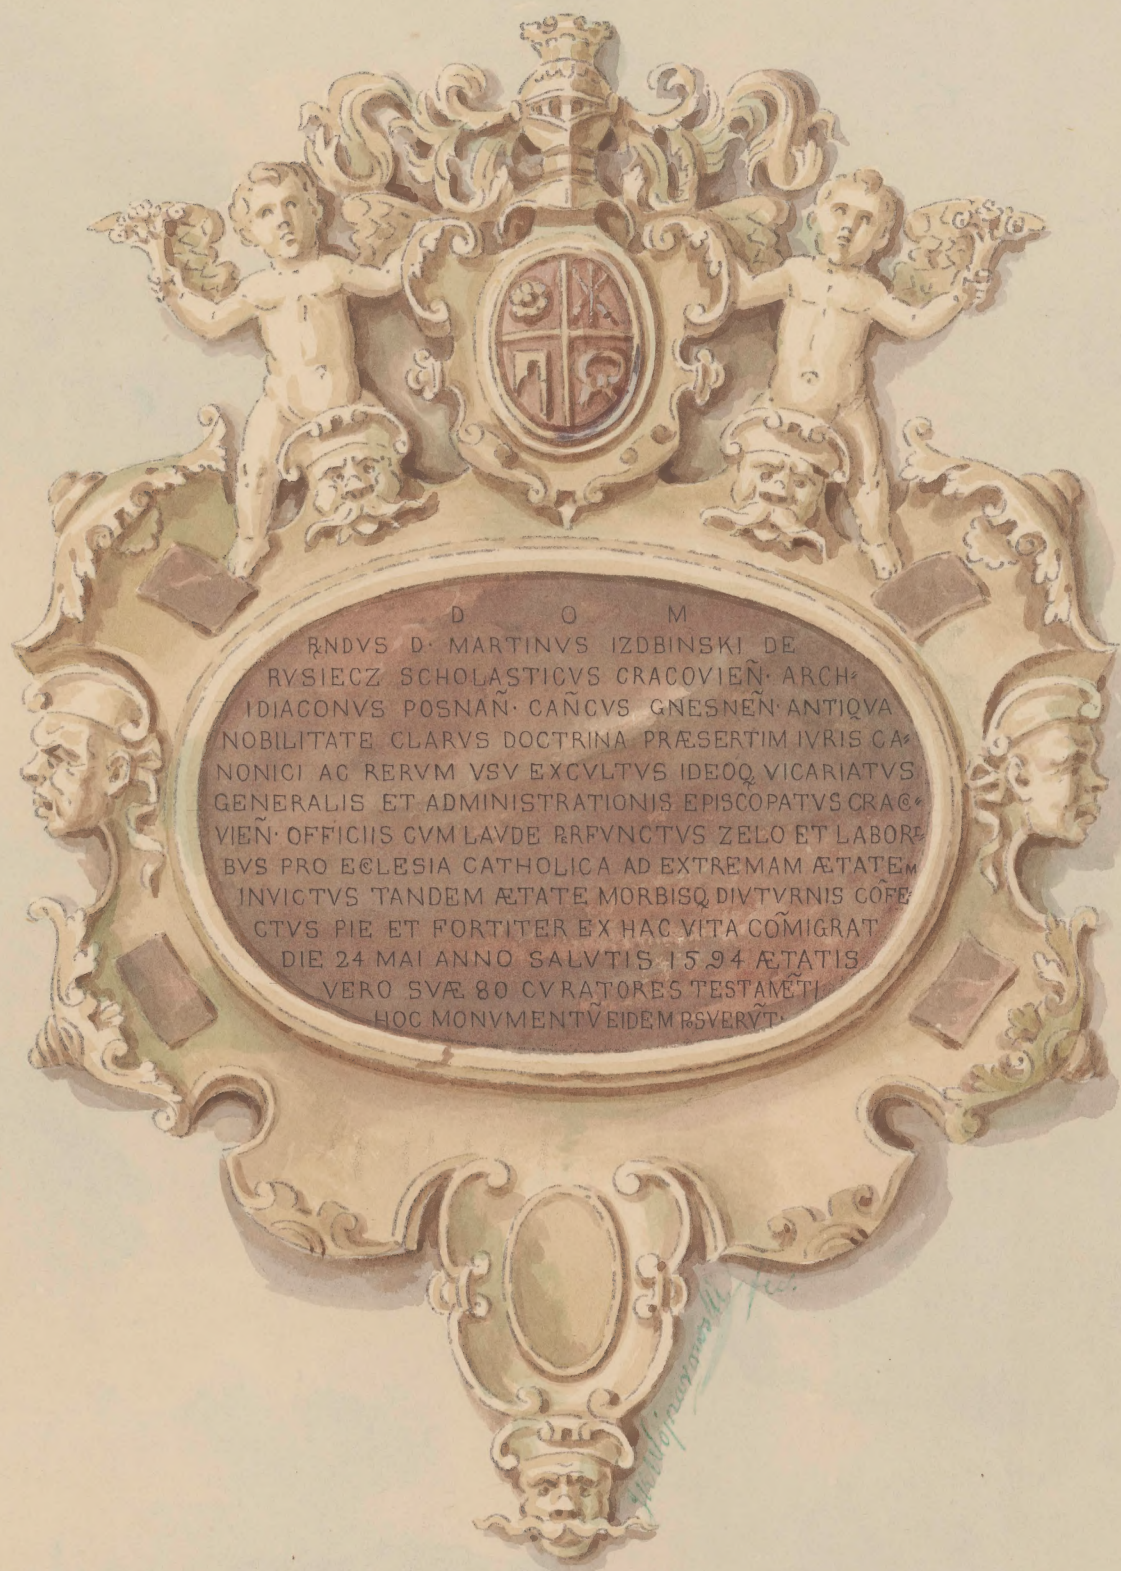 D O M
RNDVS D· MARTINVS IZDBINSKI DE
RVSIECZ SCHOLASTICVS CRACOVIEÑ· ARCH-
IDIACONVS POSNAÑ· CAÑCVS GNESNEÑ· ANTIQVA
NOBILITATE CLARVS DOCTRINA PRÆSERTIM IVRIS CA-
NONICI AC RERVM VSV EXCVLTVS IDEOQ VICARIATVS
GENERALIS ET ADMINISTRATIONIS EPISCOPATVS CRACO-
VIEÑ· OFFICIIS CVM LAVDE PRFVNCTVS ZELO ET LABORI-
BVS PRO ECLESIA CATHOLICA AD EXTREMAM ÆTATEM
INVICTVS TANDEM ÆTATE MORBISQ DIVTVRNIS CÕFE-
CTVS PIE ET FORTITER EX HAC VITA CÕMIGRAT
DIE 24 MAI ANNO SALVTIS 1594 ÆTATIS
VERO SVÆ 80 CVRATORES TESTAMẼTI
HOC MONVMENTṼ EIDEM PSVERṼT·